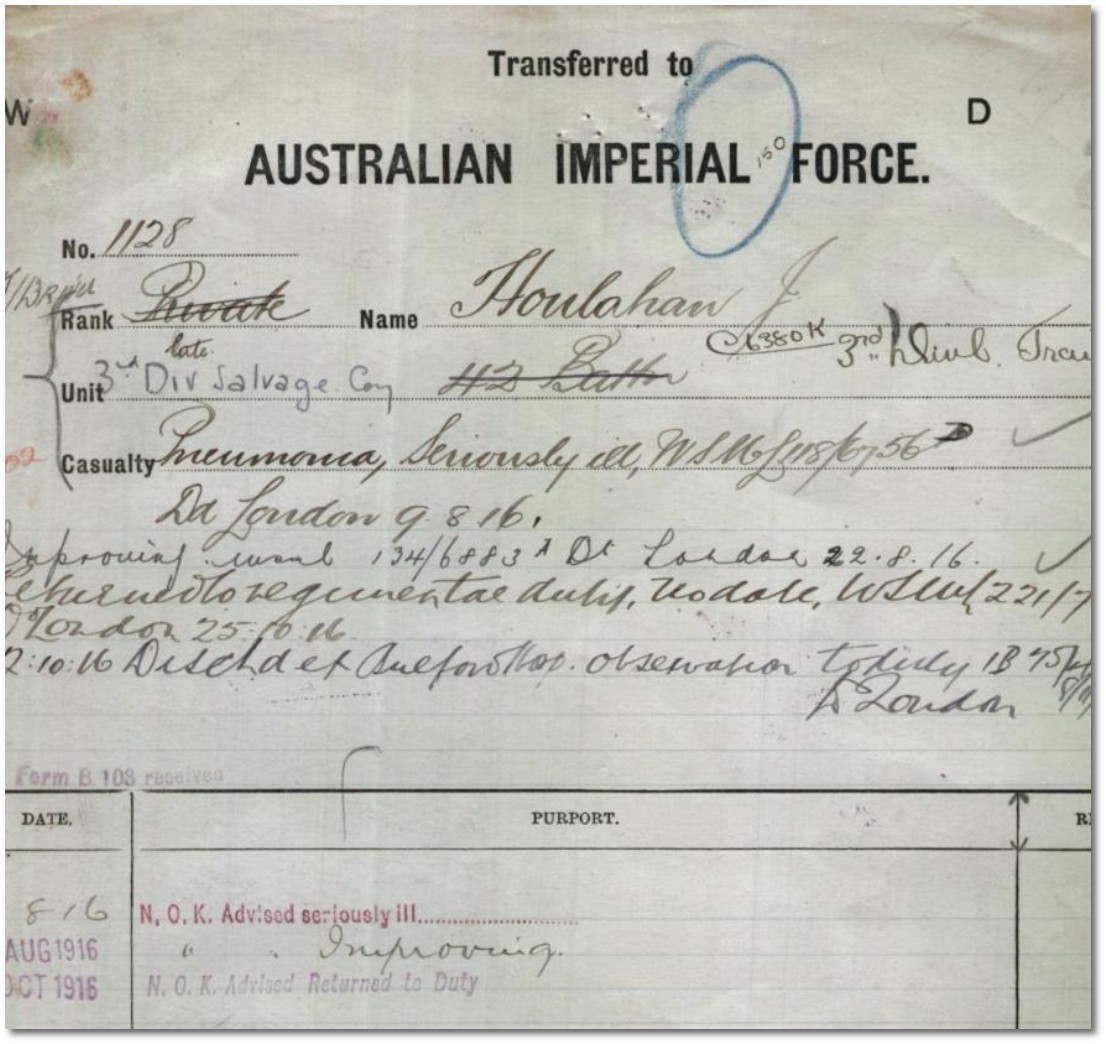 Transferred to
W D
AUSTRALIAN IMPERIAL 150 FORCE.
No. 1128
Rank Private Name Houlahan J
late C6380K 3rd Divl. Tra
Unit 3rd Div Salvage Coy 42 Battn
Casualty Pneumonia, Seriously ill,
Dd London 9 8 16.
mproving 134/6883 Dd London 22.8.16.
eturned to regimental duty, no date, 221/7
London 25.10.16.
2:10:16 Dischd ex Bulford Hos. observation to duty 1B
D London
Form B 103 received
DATE. PURPORT. R
8 16 N. O. K. Advised seriously ill
AUG 1916 " " Improving.
OCT 1916 N. O. K. Advised Returned to Duty